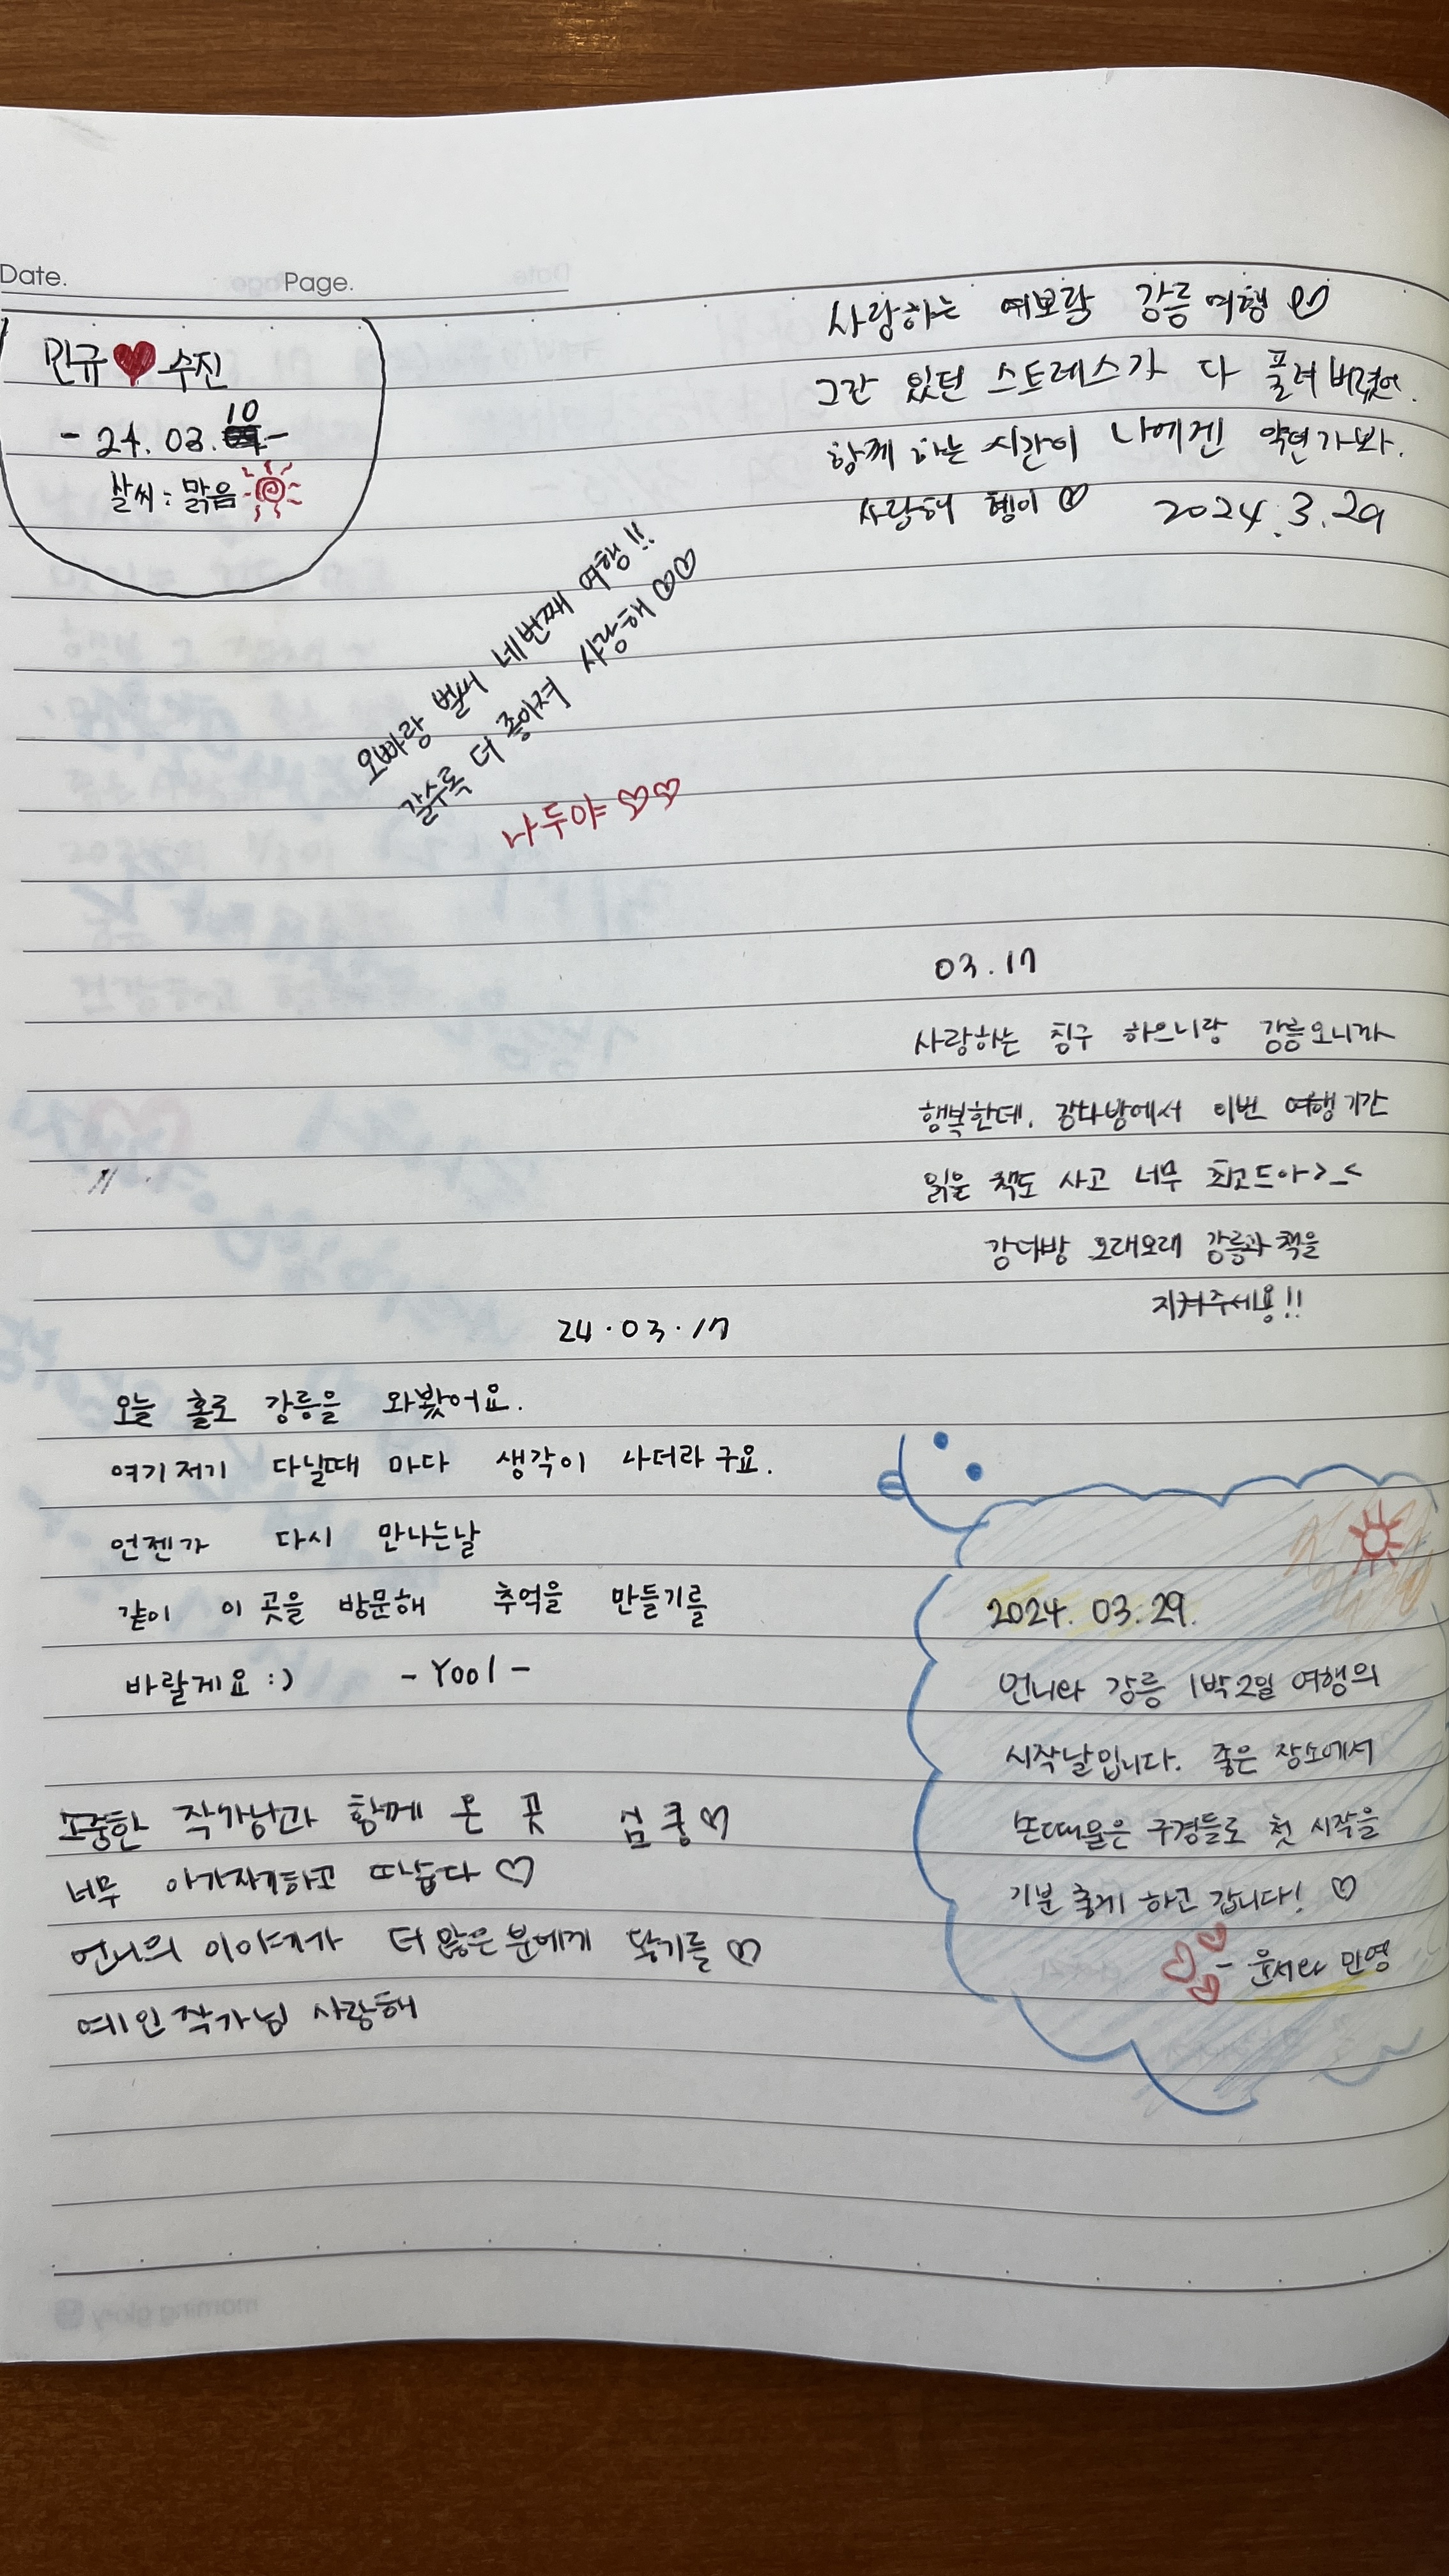 Date. Page.
민규♥수진
10
- 24. 03. -
날씨 : 맑음
사랑하는 여보랑 강릉여행♡
그간 있던 스트레스가 다 풀려버렸어.
함께 하는 시간이 나에겐 약인가봐.
사랑해 헹이♡ 2024. 3. 29
오빠랑 벌써 네번째 여행!!
갈수록 더 좋아져 사랑해♡♡
나두야♡♡
03.17
사랑하는 칭구 하으니랑 강릉오니까
행복한데, 강다방에서 이번 여행기간
읽을 책도 사고 너무 최고드아>_<
강다방 오래오래 강릉과 책을
지켜주세용!!
24·03·17
오늘 홀로 강릉을 와봤어요.
여기저기 다닐때 마다 생각이 나더라구요.
언젠가 다시 만나는날
같이 이 곳을 방문해 추억을 만들기를
바랄게요 :) - Yool -
소중한 작가님과 함께 온 곳 심쿵♡
너무 아기자기하고 따숩다♡
언니의 이야기가 더 많은 분에게 닿기를♡
예인작가님 사랑해
2024. 03. 29.
언니와 강릉 1박2일 여행의
시작날입니다. 좋은 장소에서
구경들로 첫 시작을
기분 좋게 하고 갑니다! ♡
- 윤서와 민영
morning glory